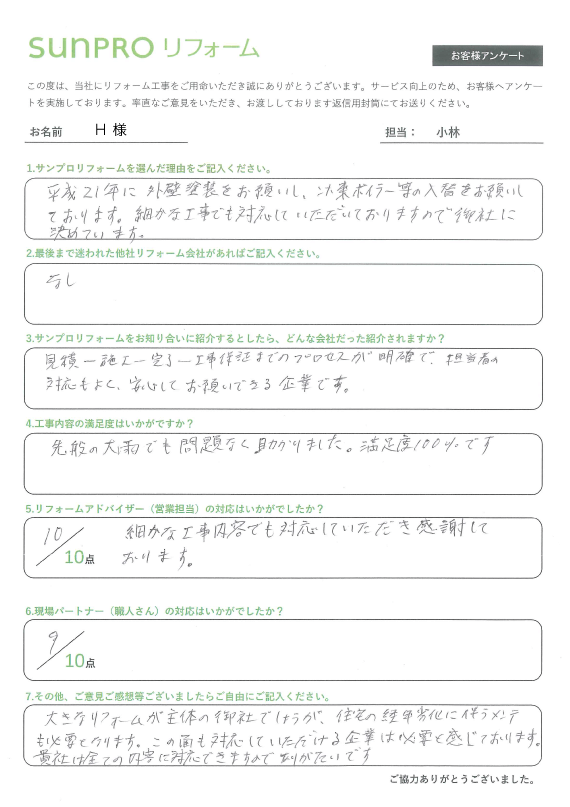 SUNPRO リフォーム
お客様アンケート
この度は、当社にリフォーム工事をご用命いただき誠にありがとうございます。サービス向上のため、お客様へアンケー
トを実施しております。率直なご意見をいただき、お渡ししております返信用封筒にてお送りください。
お名前 H 様 担当: 小林
1.サンプロリフォームを選んだ理由をご記入ください。
平成21年に外壁塗装をお願いし、以来ボイラー等の入替をお願いし
ております。細かな工事でも対応していただいておりますので御社に
決めています。
2.最後まで迷われた他社リフォーム会社があればご記入ください。
なし
3.サンプロリフォームをお知り合いに紹介するとしたら、どんな会社だった紹介されますか?
見積ー施工ー完了ー工事保証までのプロセスが明確で、担当者の
対応もよく、安心してお願いできる企業です。
4.工事内容の満足度はいかがですか?
先般の大雨でも問題なく助かりました。満足度100%です
5.リフォームアドバイザー(営業担当)の対応はいかがでしたか?
10/10点 細かな工事内容でも対応していただき感謝して
おります。
6.現場パートナー(職人さん)の対応はいかがでしたか?
9/10点
7.その他、ご意見ご感想等ございましたらご自由にご記入ください。
大きなリフォームが主体の御社でしょうが、住宅の経年劣化に伴うメンテ
も必要となります。この面も対応していただける企業は必要と感じております。
貴社は全ての内容に対応できますのでありがたいです
ご協力ありがとうございました。